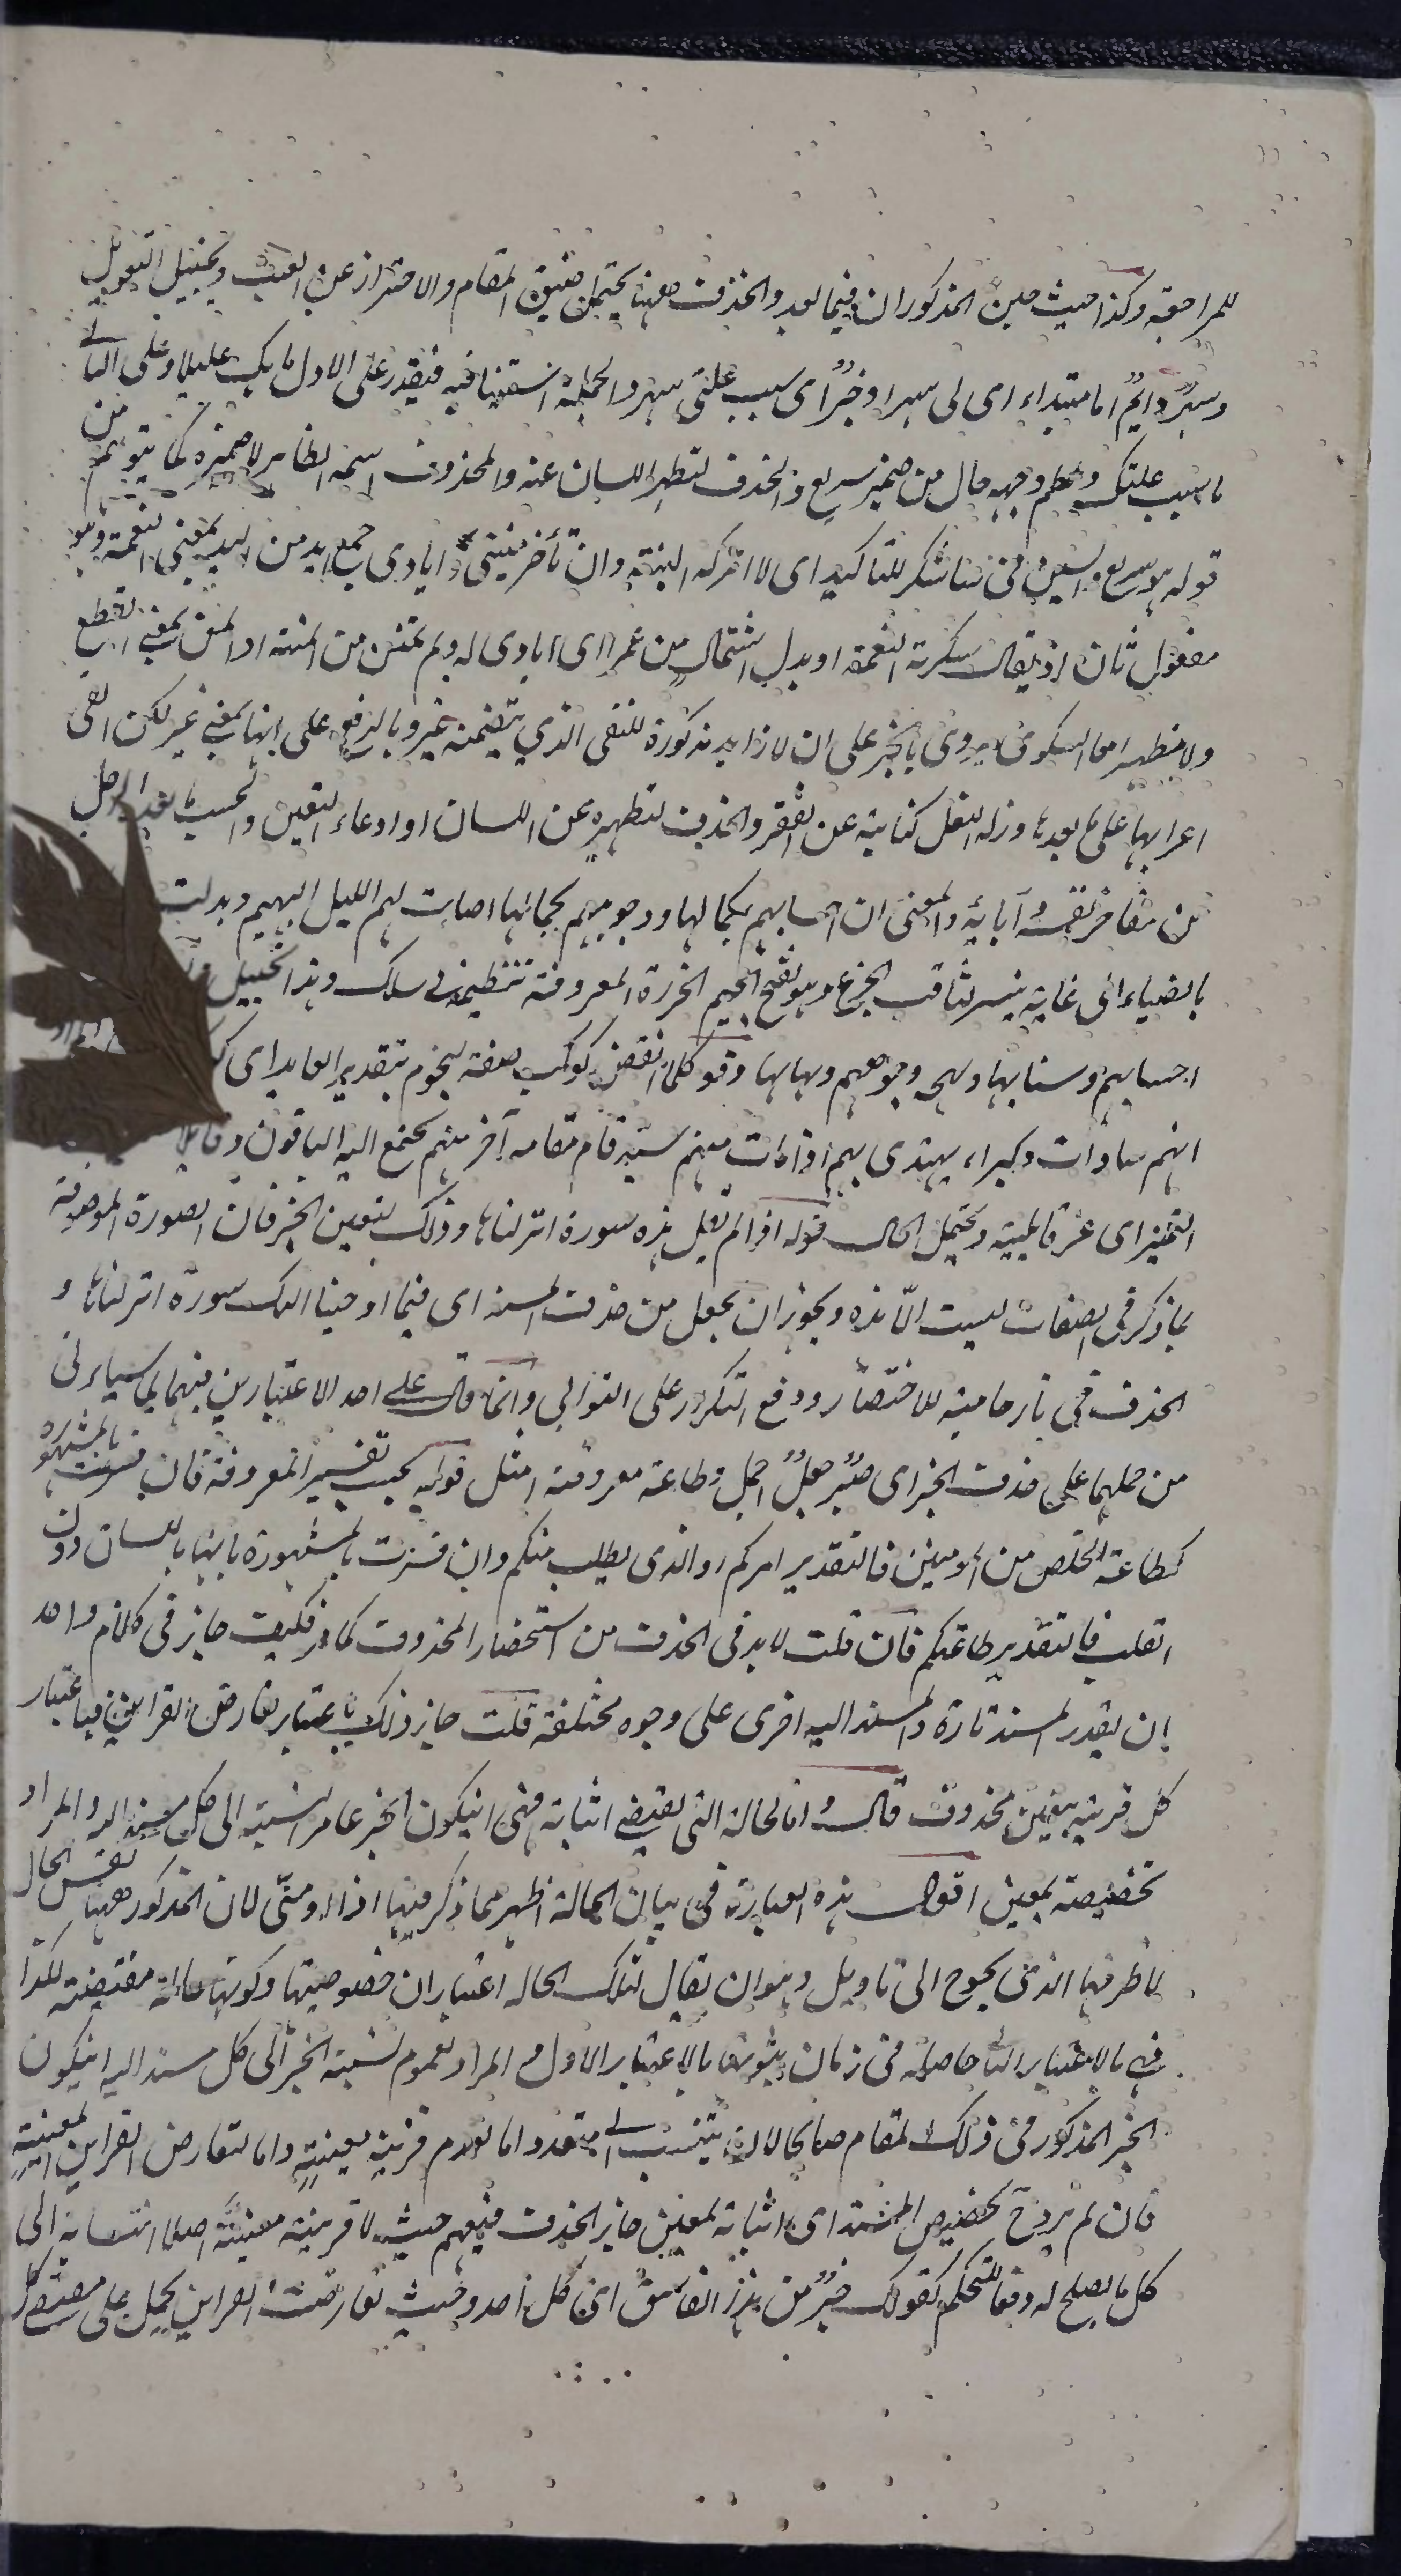 للمراجعة وكذا حيث حين المذكوران فيما بعد والحذف ههنا يحتمل ضيق المقام والاحتراز عن العبث وتخييل التعويل
وسهر دائم اما مبتداء اى لى سهر او خبر اى سبب علتى سهر والجملة استينافيه فيقدر على الاول ما بك عليلا وعلى الثانى
ما سبب علتك وجهه حال من ضمير سريع والحذف لتطهير اللسان عنه والمحذوف اسمه الظاهر لا ضميره كما يتوهم من
قوله هو سريع والسين فى ساشكر للتاكيد اى لا اترك البتة وان تأخر منيتى و ايادى جمع ايد من اليد بمعنى النعمة وهو
مفعول ثان اذ يقال شكرته النعمة او بدل اشتمال من عمرا اى ايادى له ولم تمنن من المنة او المن بمعنى القطع
ولا مظهر الشكوى يروى بالجر على ان لا زايد مذكورة للنفى الذي يتضمنه غير وبالرفع على انها بمعنى غير لكن القى
اعرابها على ما بعدها وزلة النعل كناية عن الفقر والحذف لتطهيره عن اللسان او ادعاء التعين والحسب ما يعده الرجل
من مفاخر نفسه وآبائه والمعنى ان احسابهم بكمالها ووجوههم بجمالها اضاءت لهم الليل البهيم وبدلت
بالضياء الى غاية يتيسر لثاقب الجزع وهو بفتح الجيم الخرزة المعروفة تنظيمه فى سلك وهذا تخييل
احسابهم وسنائها وبهجة وجوههم وبهائها وقوله كلما انقض كوكب صفة لنجوم بتقدير العايد اى
انهم سادات وكبراء يهتدى بهم اذا مات منهم سيد قام مقامه آخر منهم يجتمع اليه الباقون
التميز اى عز قابليته ويحتمل الحال قوله اذا لم تقل هذه سورة انزلناها وذلك لتعين الخبر فان الصورة الموصوفة
بما ذكر فى الصفات ليست الا هذه ويجوز ان يجعل من حذف المسند اى فيما اوحينا اليك سورة انزلناها و
الحذف فى نار حامية للاختصار ودفع التكرر على التوالى وانما قال على احد الاعتبارين فيهما لما سيأتى
من حملهما على حذف الخبر اى صبر جميل اجمل وطاعة معروفة امثل قوله بحسب تفسير المعروفة فان فسرت بالمشهورة
كطاعة الخلص من المومنين فالتقدير امركم او الذى يطلب منكم وان فسرت بالمشهورة بانها باللسان دون
القلب فالتقدير طاعتكم فان قلت لا بد فى الحذف من استحضار المحذوف كما مر فكيف جايز فى كلام واحد
ان يقدر المسند تارة والمسند اليه اخرى على وجوه مختلفة قلت جاز ذلك باعتبار تعارض القراين فباعتبار
كل قرينة يتعين محذوف قال واما الحالة التى يقتضى اثباته فهى ان يكون الخبر عام النسبة الى كل مسند اليه والمراد
تخصيصه بمعين اقول هذه العبارة فى بيان الحالة اظهر مما ذكر فيها اذا او متى لان المذكور ههنا نفس الحال
لا ظرفها الذى يحوج الى تاويل وهو ان يقال لتلك الحالة اعتباران خصوصيتها وكونها حالة مقتضية لكذا
فهى بالاعتبار الثانى حاصلة فى زمان ثبوتها بالاعتبار الاول والمراد لعموم نسبة الخبر الى كل مسند اليه ان يكون
الخبر المذكور فى ذلك المقام صالحا لان ينتسب الى متعدد اما لعدم قرينة معينة واما لتعارض القراين المعينة
فان لم يرد ح تخصيص المسند اى اثباته لمعين جاز الحذف فيعم حيث لا قرينة معينة اصلا انتسابه الى
كل ما يصلح له دفعا للتحكم كقولك خير من هذا الفاسق اى كل احد وحيث تعارضت القراين يحمل على مقتضى كل